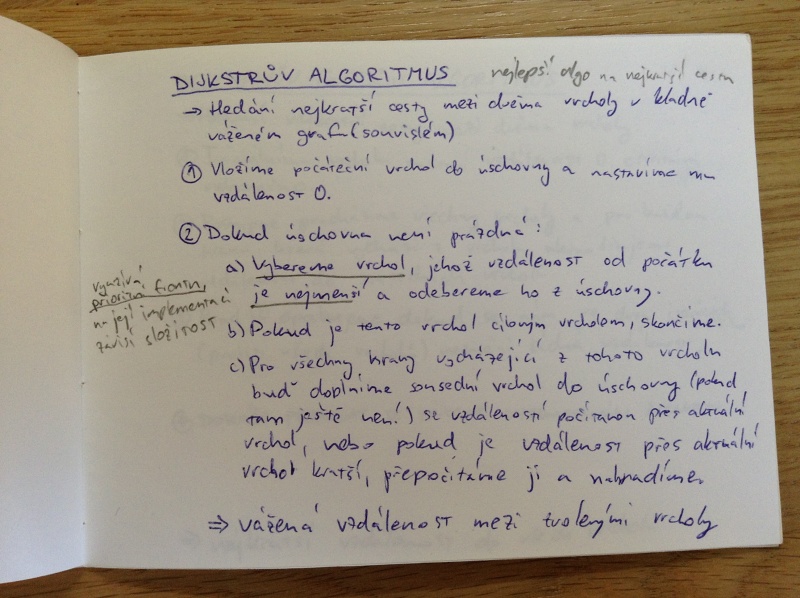 DIJKSTRŮV ALGORITMUS
nejlepší algo na nejkratší cestu
→ Hledání nejkratší cesty mezi dvěma vrcholy v kladně
váženém grafu (souvislém)
① Vložíme počáteční vrchol do úschovny a nastavíme mu
vzdálenost 0.
② Dokud úschovna není prázdná:
a) Vybereme vrchol, jehož vzdálenost od počátku
je nejmenší a odebereme ho z úschovny.
využívá
prioritní frontu,
na její implementaci
závisí složitost
b) Pokud je tento vrchol cílovým vrcholem, skončíme.
c) Pro všechny hrany vycházející z tohoto vrcholu
buď doplníme sousední vrchol do úschovny (pokud
tam ještě není) se vzdáleností počítanou přes aktuální
vrchol, nebo pokud je vzdálenost přes aktuální
vrchol kratší, přepočítáme ji a nahradíme.
⇒ vážená vzdálenost mezi zvolenými vrcholy